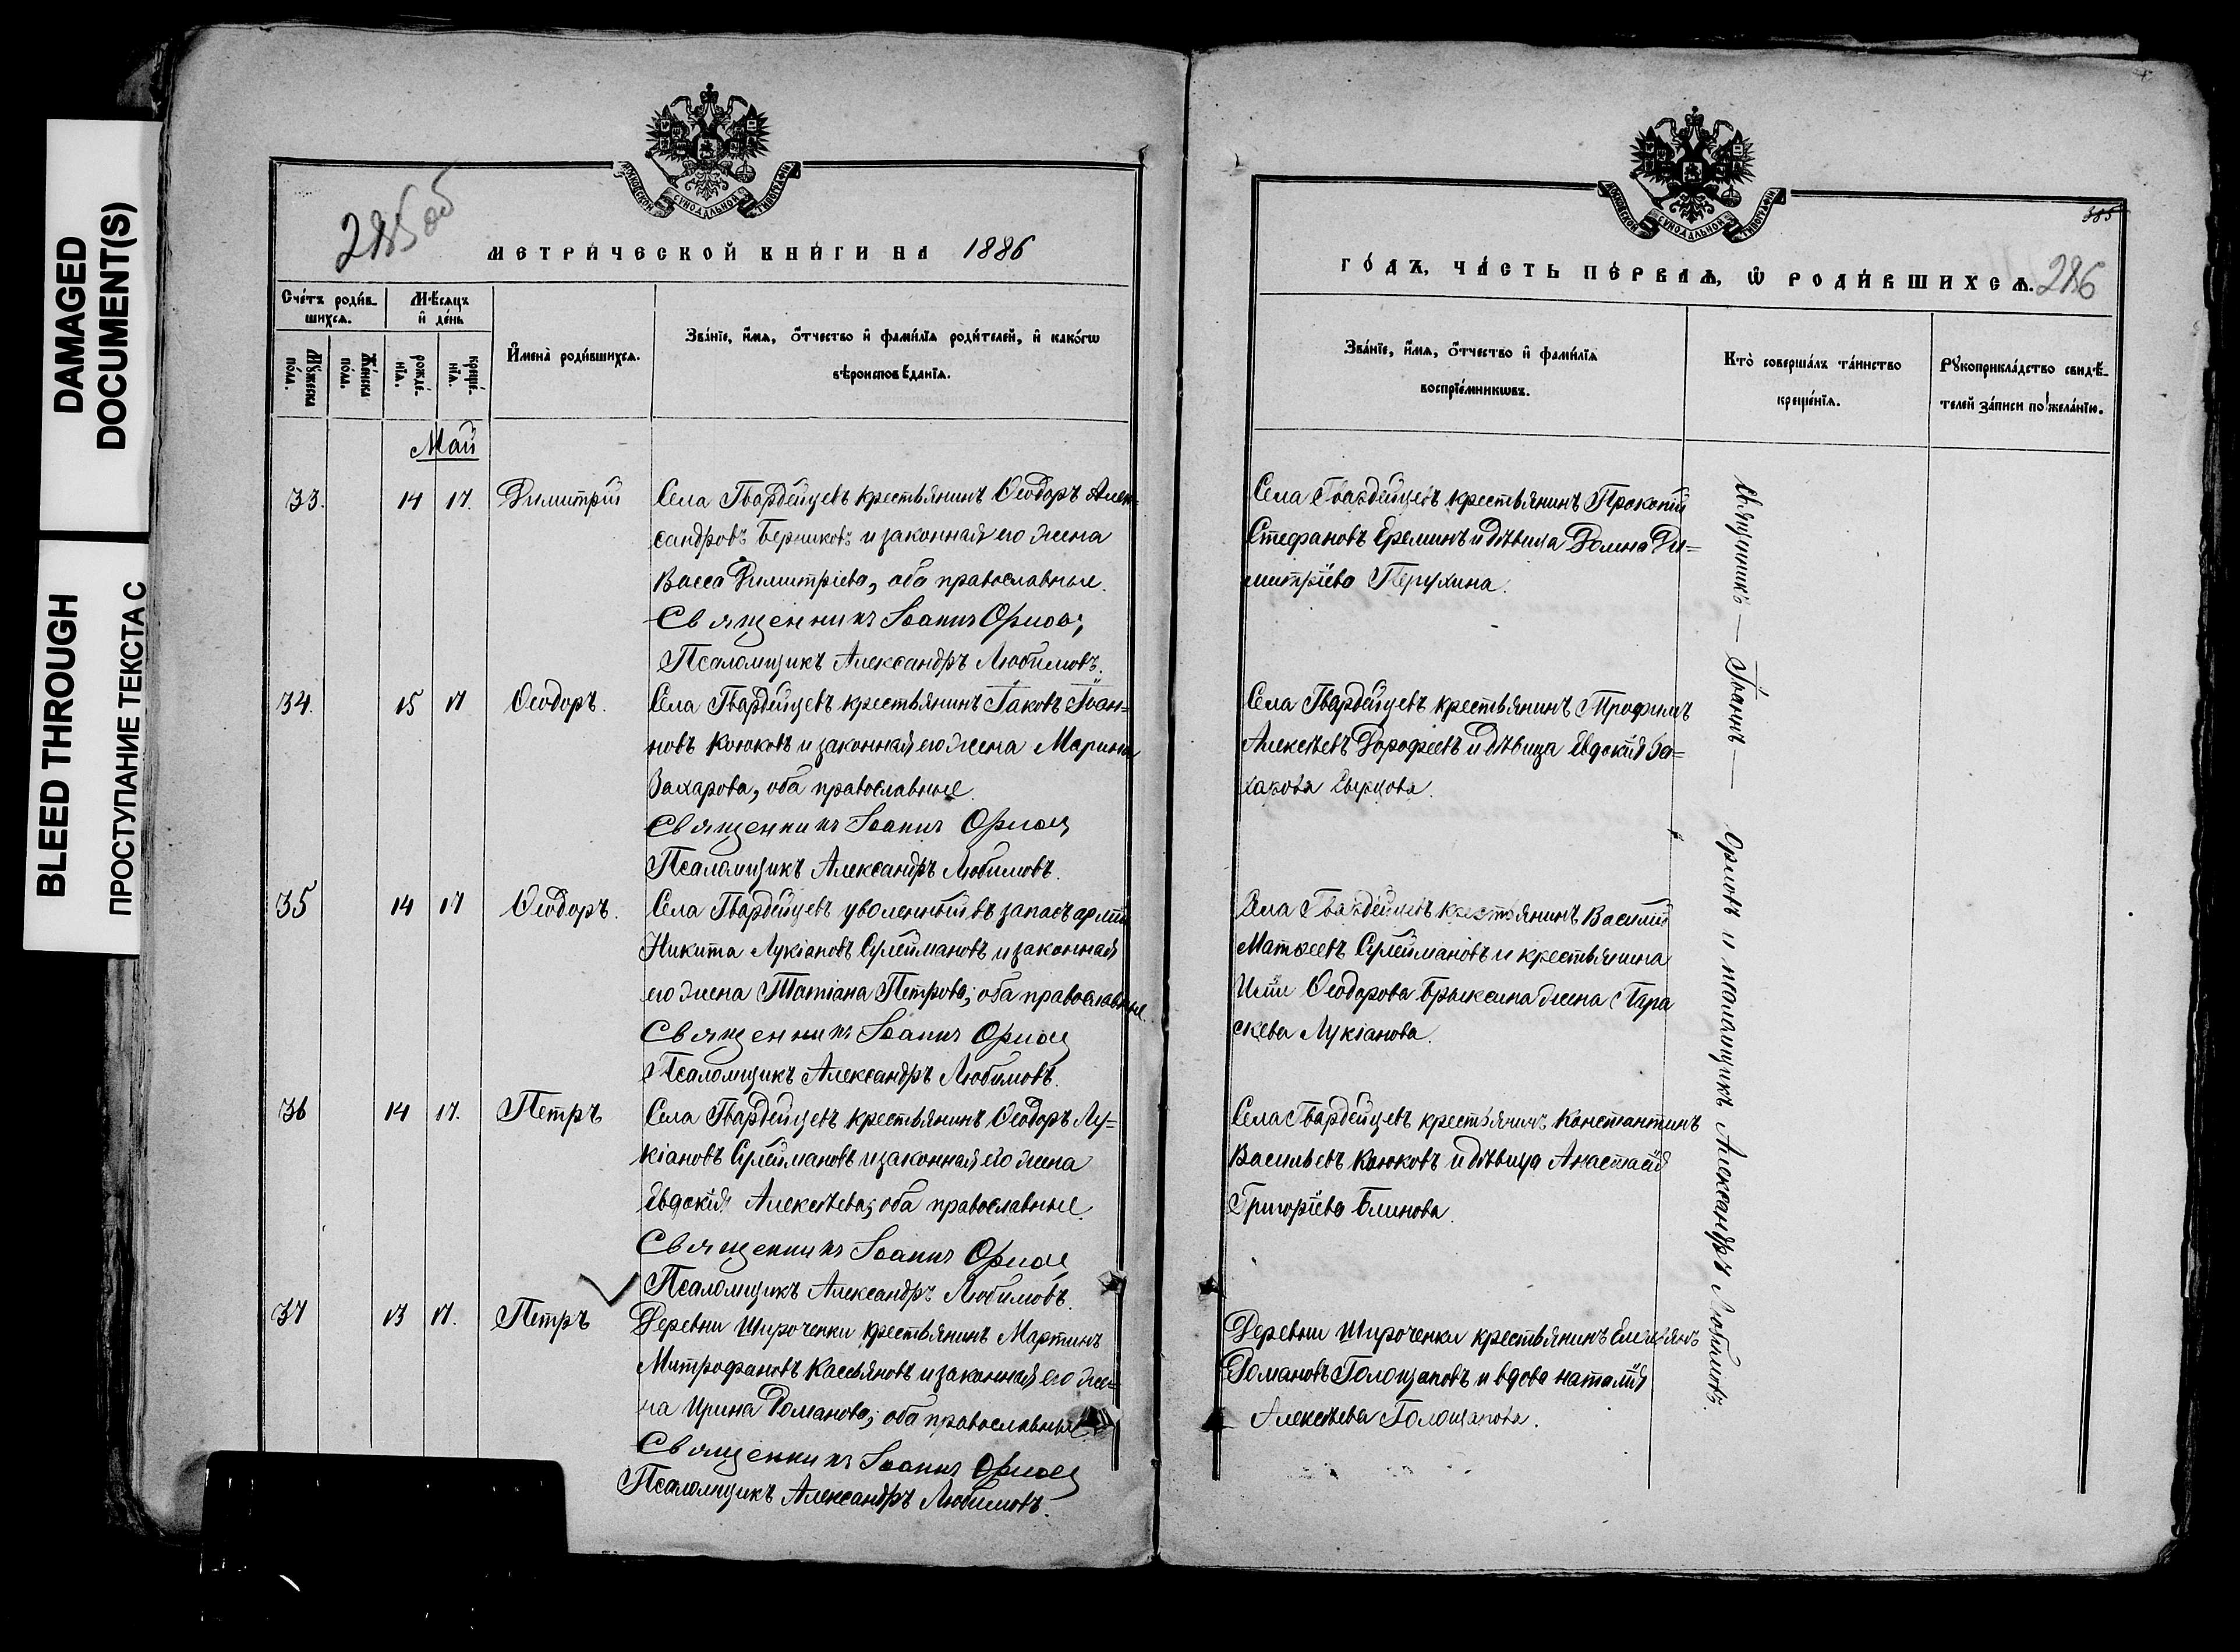 DAMAGED
DOCUMENT(S)
BLEED THROUGH
ПРОСТУПАНИЕ ТЕКСТА С
МОСКОВСКОЙ СѴНОДАЛЬНОЙ ТИПОГРАФІИ
285 об
МЕТРИ́ЧЕСКОЙ КНИ́ГИ НА 1886
Сче́тъ роди́в-
шихсѧ.
Мѣ́сѧцъ
и҆ де́нь
Мꙋжеска
по́ла.
Же́нска
по́ла.
рожде́-
нїѧ.
креще́-
нїѧ.
И҆мена̀ роди́вшихсѧ.
Зва́нїе, и҆́мѧ, ѻ҆́тчество и҆ фами́лїѧ роди́телей, и҆ како́гѡ
вѣроисповѣ́данїѧ.
Май
33. 14 17. Димитрій Села Гвардейцевъ крестьянинъ Ѳеодоръ Алек-
сандровъ Берниковъ и законная его жена
Васса Димитріева, оба православные.
Священникъ Іоаннъ Орловъ
Псаломщикъ Александръ Любимовъ.
34. 15 17 Ѳеодоръ. Села Гвардейцевъ крестьянинъ Іаковъ Іоан=
новъ Коюковъ и законная его жена Марина
Захарова, оба православные
Священникъ Іоаннъ Орловъ
Псаломщикъ Александръ Любимовъ.
35 14 17 Ѳеодоръ. Села Гвардейцевъ уволенный въ запасъ арміи
Никита Лукіановъ Сулеймановъ и законная
его жена Татіана Петрова; оба православные.
Священникъ Іоаннъ Орловъ
Псаломщикъ Александръ Любимовъ.
36 14 17. Петръ Села Гвардейцевъ крестьянинъ Ѳеодоръ Лу=
кіановъ Сулеймановъ и законная его жена
Евдокія Алексѣева; оба православные.
Священникъ Іоаннъ Орловъ
Псаломщикъ Александръ Любимовъ.
37 13 17. Петръ Деревни Широченки крестьянинъ Мартинъ
Митрофановъ Кассьяновъ и законная его же=
на Ирина Романова; оба православные
Священникъ Іоаннъ Орловъ
Псаломщикъ Александръ Любимовъ.
МОСКОВСКОЙ СѴНОДАЛЬНОЙ ТИПОГРАФІИ
385
ГО́ДЪ, ЧА́СТЬ ПЕ́РВАѦ, Ѡ҆ РОДИ́ВШИХСѦ. 286
Зва́нїе, и҆́мѧ, ѻ҆́тчество и҆ фами́лїѧ
воспрїе́мникѡвъ.
Кто̀ соверша́лъ та́инство
креще́нїѧ.
Рꙋкоприкла́дство свидѣ́-
телей за́писи по жела́нїю.
Села Гвардейцевъ крестьянинъ Прокопій
Стефановъ Ереминъ и дѣвица Домна Ди=
митріева Перухина.
Села Гвардейцевъ крестьянинъ Трофимъ
Алексѣевъ Дорофеевъ и дѣвица Евдокія За=
харова Сыркова.
Села Гвардейцевъ крестьянинъ Василій
Матвеевъ Сулеймановъ и крестьянина
Иліи Ѳеодорова Брыксина жена Пара
скева Лукіанова.
Села Гвардейцевъ крестьянинъ Константинъ
Васильевъ Коюковъ и дѣвица Анастасія
Григоріева Блинова.
Деревни Широченки крестьянинъ Емельянъ
Романовъ Голощаповъ и вдова Наталія
Алексѣева Голощапова.
Священникъ — Іоаннъ — Орловъ и псаломщикъ Александръ Любимовъ.